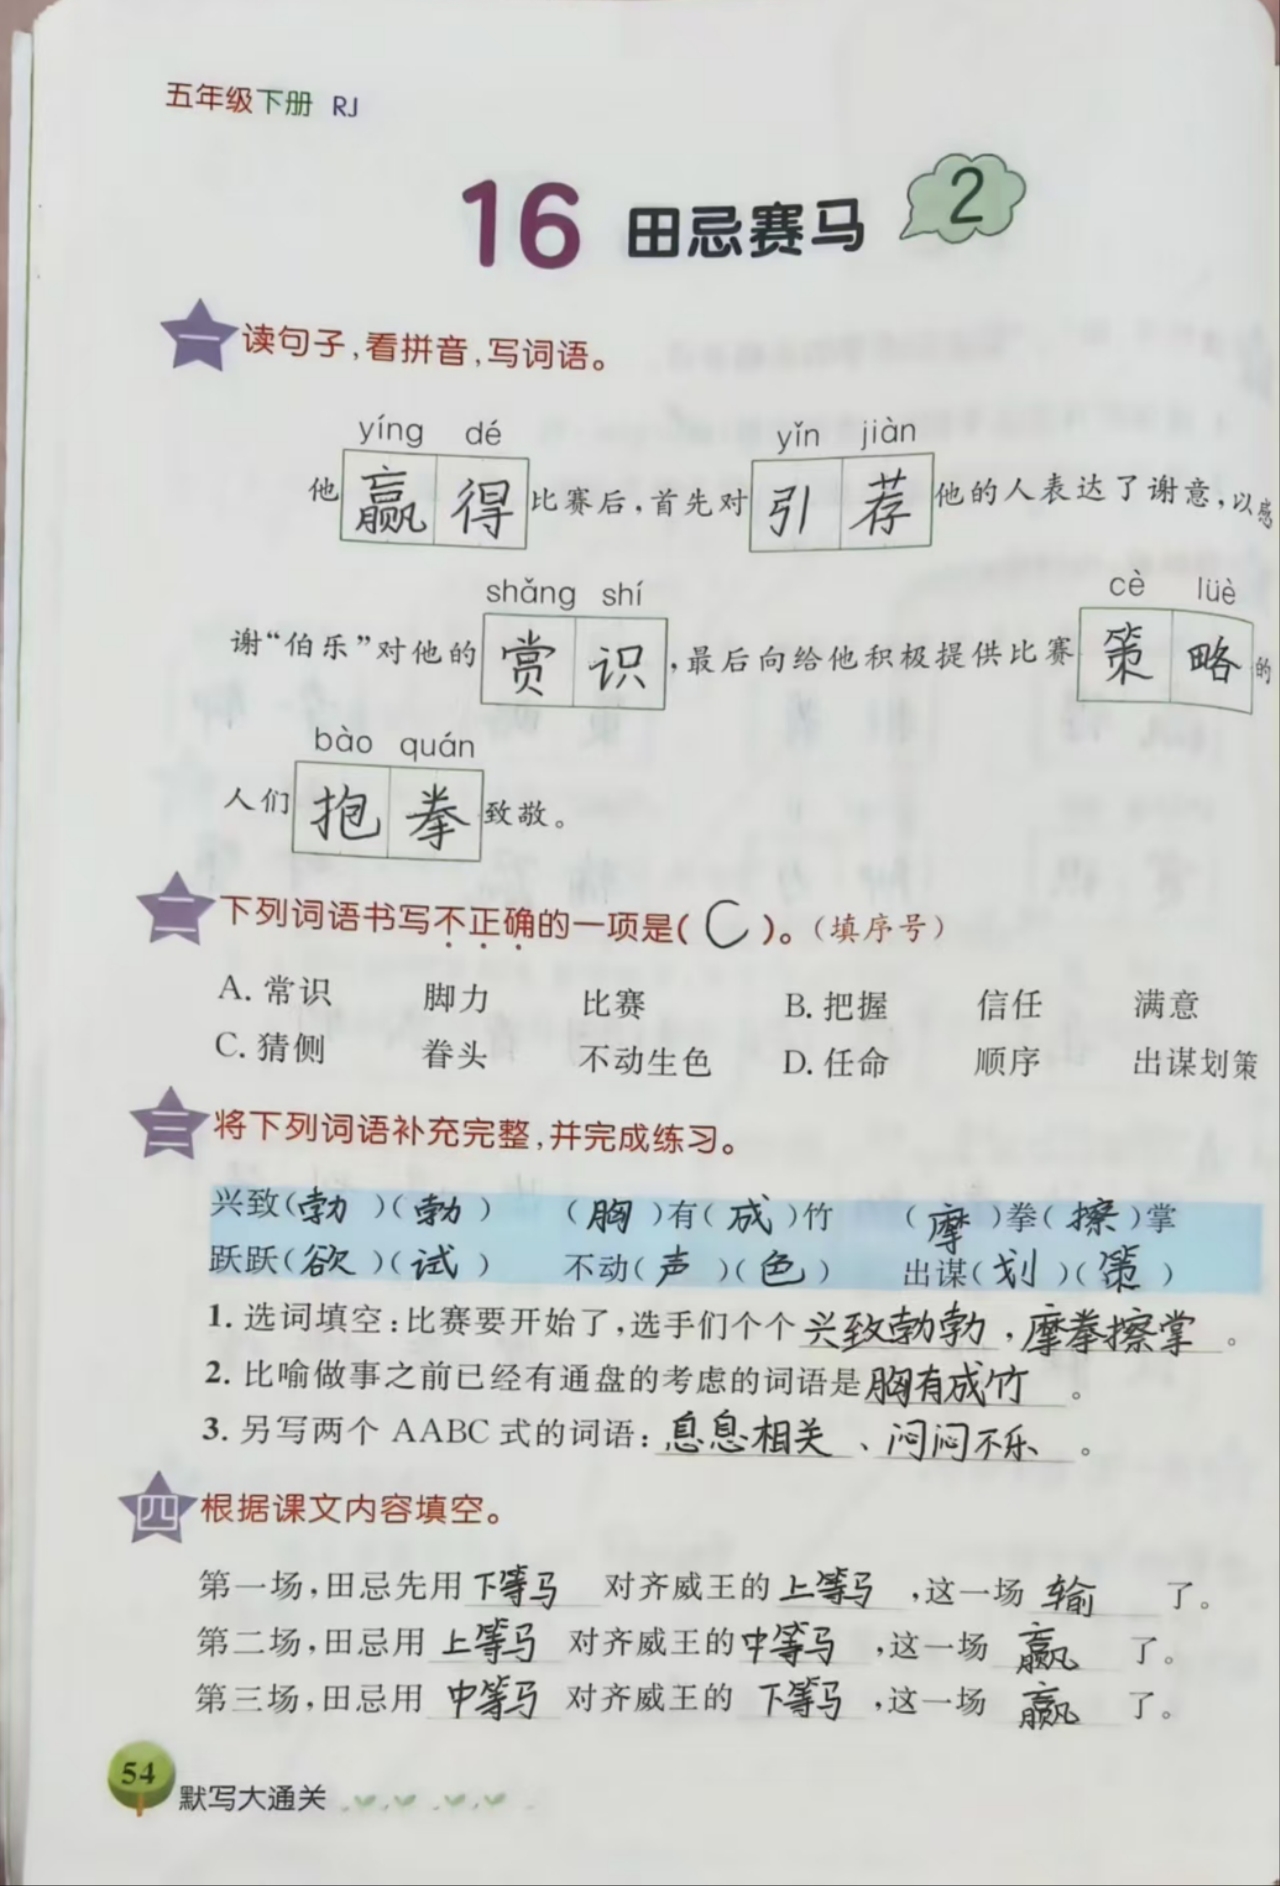 五年级下册 RJ
16 田忌赛马 2
一 读句子,看拼音,写词语。
yíng dé yǐn jiàn
他赢得比赛后,首先对引荐他的人表达了谢意,以感
shǎng shí cè lüè
谢“伯乐”对他的赏识,最后向给他积极提供比赛策略的
bào quán
人们抱拳致敬。
二 下列词语书写不正确的一项是(C)。(填序号)
A. 常识 脚力 比赛 B. 把握 信任 满意
C. 猜侧 眷头 不动生色 D. 任命 顺序 出谋划策
三 将下列词语补充完整,并完成练习。
兴致(勃)(勃) (胸)有(成)竹 (摩)拳(擦)掌
跃跃(欲)(试) 不动(声)(色) 出谋(划)(策)
1. 选词填空:比赛要开始了,选手们个个兴致勃勃,摩拳擦掌。
2. 比喻做事之前已经有通盘的考虑的词语是胸有成竹。
3. 另写两个 AABC 式的词语:息息相关、闷闷不乐。
四 根据课文内容填空。
第一场,田忌先用下等马对齐威王的上等马,这一场输了。
第二场,田忌用上等马对齐威王的中等马,这一场赢了。
第三场,田忌用中等马对齐威王的下等马,这一场赢了。
54 默写大通关